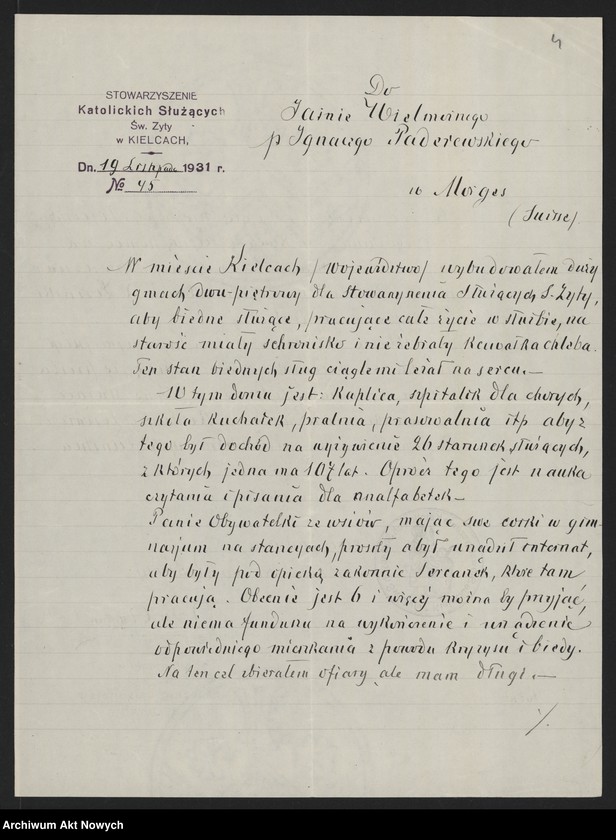 4
STOWARZYSZENIE
Katolickich Służących
Św. Zyty
w KIELCACH,
Dn. 19 Listopada 1931 r.
№ 45
Do
Jaśnie Wielmożnego
p Ignacego Paderewskiego
w Morges
(Suisse)
W mieście Kielcach /Województwo/ wybudowałem duży
gmach dwu-piętrowy dla Stowarzyszenia Służących Ś. Zyty,
aby biedne służące, pracujące całe życie w służbie, na
starość miały schronisko i nie żebrały kawałka chleba.
Ten stan biednych sług ciągle mi leżał na sercu.-
W tym domu jest: Kaplica, szpitalik dla chorych,
szkoła kucharek, pralnia, prasowalnia itp aby z
tego był dochód na wyżywienie 26 staruszek służących,
z których jedna ma 107 lat. Oprócz tego jest nauka
czytania i pisania dla analfabetek-
Panie Obywatelki ze wsiów, mając swe córki w gim-
nazjum na stancyach, prosiły abył urządził internat,
aby były pod opieką zakonnic Sercanek, które tam
pracują. Obecnie jest 6 i więcej można by przyjąć,
ale niema funduszu na wykończenie i urządzenie
odpowiedniego mieszkania z powodu kryzysu i biedy.
Na ten cel zbierałem ofiary ale mam długi.-
./.
Archiwum Akt Nowych